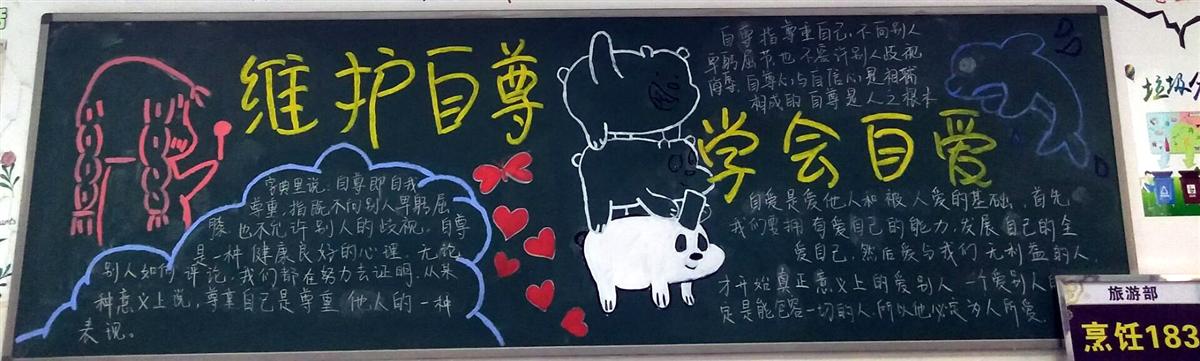 维护自尊
学会自爱
自尊指尊重自己,不向别人
卑躬屈节,也不容许别人歧视
侮辱.自尊心与自信心是相辅
相成的 自尊是人之根本
字典里说:自尊即自我
尊重,指既不向别人卑躬屈
膝.也不允许别人的歧视.自尊
是一种健康良好的心理.无论
别人如何评论,我们都在努力去证明.从某
种意义上说,尊重自己是尊重他人的一种
表现。
自爱是爱他人和被人爱的基础.首先
我们要拥有爱自己的能力,发展自己的全
爱自己,然后爱与我们无利益的人,
才开始真正意义上的爱别人 一个爱别人
是能包容一切的人.所以他必定为人所爱.
垃圾分
旅游部
烹饪183